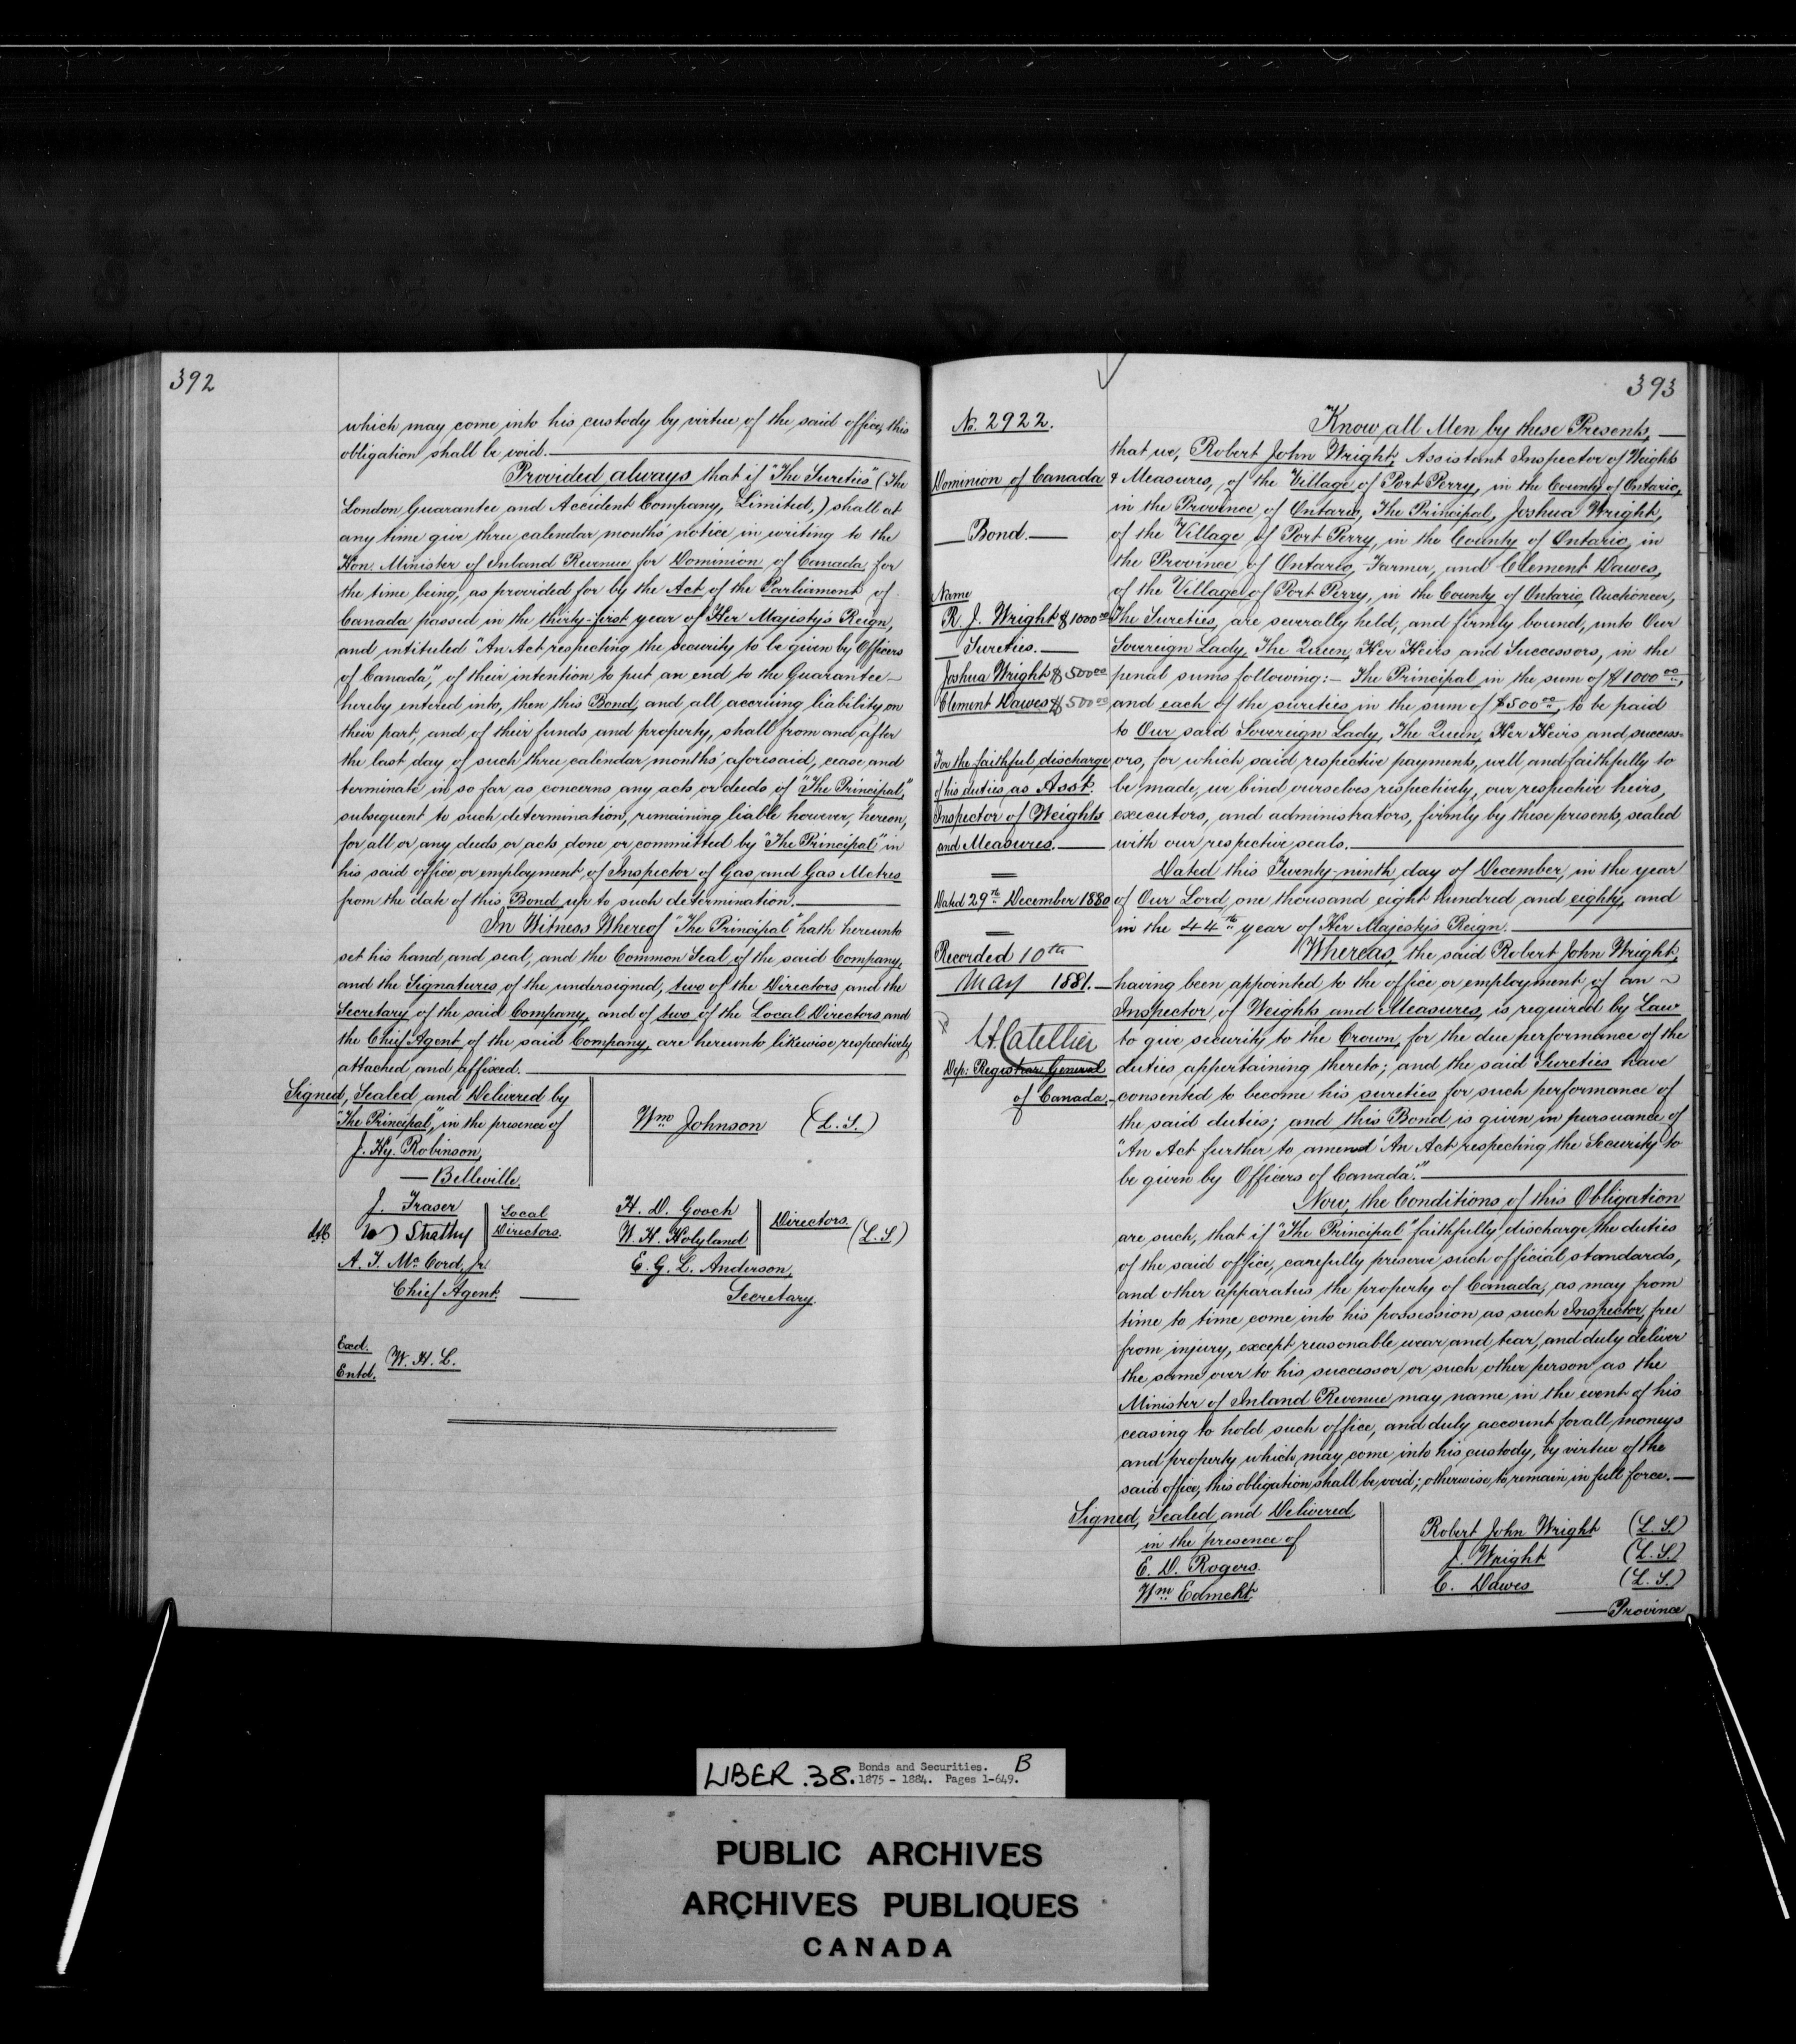 392
which may come into his custody by virtue of the said office, this
obligation shall be void.
Provided always that if "The Sureties" (The
London Guarantee and Accident Company, Limited,) shall at
any time give three calendar months' notice in writing to the
Hon. Minister of Inland Revenue for Dominion of Canada for
the time being, as provided for by the Act of the Parliament of
Canada passed in the thirty-first year of Her Majesty's Reign,
and intituled "An Act respecting the security to be given by Officers
of Canada", of their intention to put an end to the Guarantee
hereby entered into, then this Bond, and all accruing liability on
their part, and of their funds and property, shall from and after
the last day of such three calendar months' aforesaid, cease and
terminate in so far as concerns any acts or deeds of "The Principal,"
subsequent to such determination, remaining liable however, hereon,
for all or any deeds or acts done or committed by "The Principal" in
his said office or employment of Inspector of Gas and Gas Metres
from the date of this Bond up to such determination.
In Witness Whereof "The Principal" hath hereunto
set his hand and seal, and the Common Seal of the said Company,
and the Signatures of the undersigned, two of the Directors and the
Secretary of the said Company, and of two of the Local Directors and
the Chief Agent of the said Company, are hereunto likewise respectively
attached and affixed.
Signed, Sealed and Delivered by
"The Principal", in the presence of
J. Hy. Robinson,
Belleville.
Wm Johnson (L.S.)
J. Fraser
Strathy
Local
Directors.
A. T. Mc Cord, Jr.
Chief Agent.
H. D. Gooch
W. H. Holyland
Directors.
(L.S.)
E. G. L. Anderson,
Secretary.
Exd.
Entd.
W. H. L.
393
No. 2922.
Dominion of Canada
Bond.
Name
R. J. Wright $1000 00
Sureties.
Joshua Wright $500 00
Clement Dawes $500 00
For the faithful discharge
of his duties as Asst.
Inspector of Weights
and Measures.
Dated 29th December 1880
Recorded 10th
May 1881.
Catellier
Dep: Registrar General
of Canada.
Know all Men by these Presents,
that we, Robert John Wright, Assistant Inspector of Weights
& Measures, of the Village of Port Perry, in the County of Ontario,
in the Province of Ontario, The Principal, Joshua Wright,
of the Village of Port Perry, in the County of Ontario, in
the Province of Ontario, Farmer, and Clement Dawes,
of the Village of Port Perry, in the County of Ontario, Auctioneer,
The Sureties, are severally held, and firmly bound, unto Our
Sovereign Lady, The Queen, Her Heirs and Successors, in the
penal sums following:- The Principal in the sum of $1000 00,
and each of the sureties in the sum of $500 00, to be paid
to Our said Sovereign Lady, The Queen, Her Heirs and success-
ors, for which said respective payments, well and faithfully to
be made, we bind ourselves respectively, our respective heirs,
executors, and administrators, firmly by these presents, sealed
with our respective seals.
Dated this Twenty-ninth day of December, in the year
of Our Lord, one thousand eight hundred and eighty, and
in the 44th year of Her Majesty's Reign.
Whereas, the said Robert John Wright,
having been appointed to the office or employment of an
Inspector of Weights and Measures, is required by Law
to give security to the Crown, for the due performance of the
duties appertaining thereto; and the said Sureties have
consented to become his sureties for such performance of
the said duties; and this Bond is given in pursuance of
"An Act further to amend 'An Act respecting the Security to
be given by Officers of Canada'."
Now, the Conditions of this Obligation
are such, that if "The Principal" faithfully discharge the duties
of the said office, carefully preserve such official standards,
and other apparatus the property of Canada, as may from
time to time come into his possession as such Inspector, free
from injury, except reasonable wear and tear, and duly deliver
the same over to his successor or such other person as the
Minister of Inland Revenue may name in the event of his
ceasing to hold such office, and duly account for all moneys
and property which may come into his custody, by virtue of the
said office, this obligation shall be void; otherwise to remain in full force.
Signed, Sealed and Delivered,
in the presence of
E. D. Rogers.
Wm
Robert John Wright (L.S.)
J. Wright (L.S.)
C. Dawes (L.S.)
Province
LIBER .38. Bonds and Securities. B
1875 - 1884. Pages 1-649.
PUBLIC ARCHIVES
ARCHIVES PUBLIQUES
CANADA